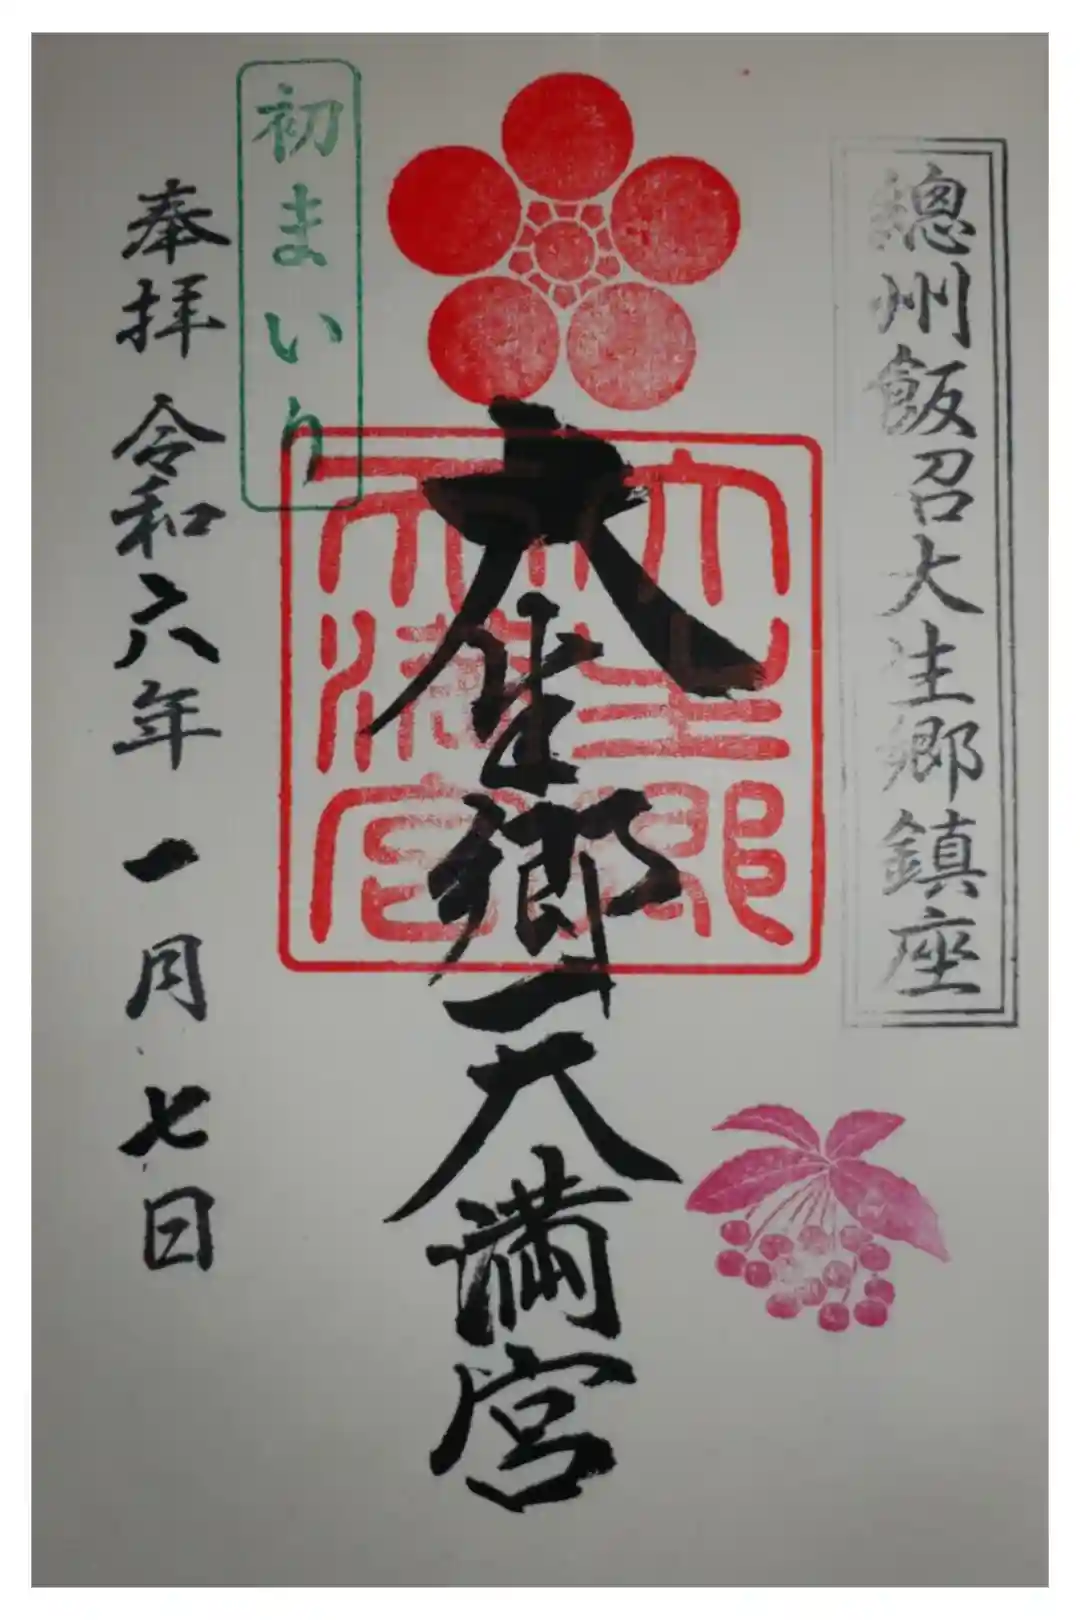 總州飯召大生郷鎮座
大生郷天満宮
大生郷天満宮
初まいり
奉拝 令和六年 一月 七日